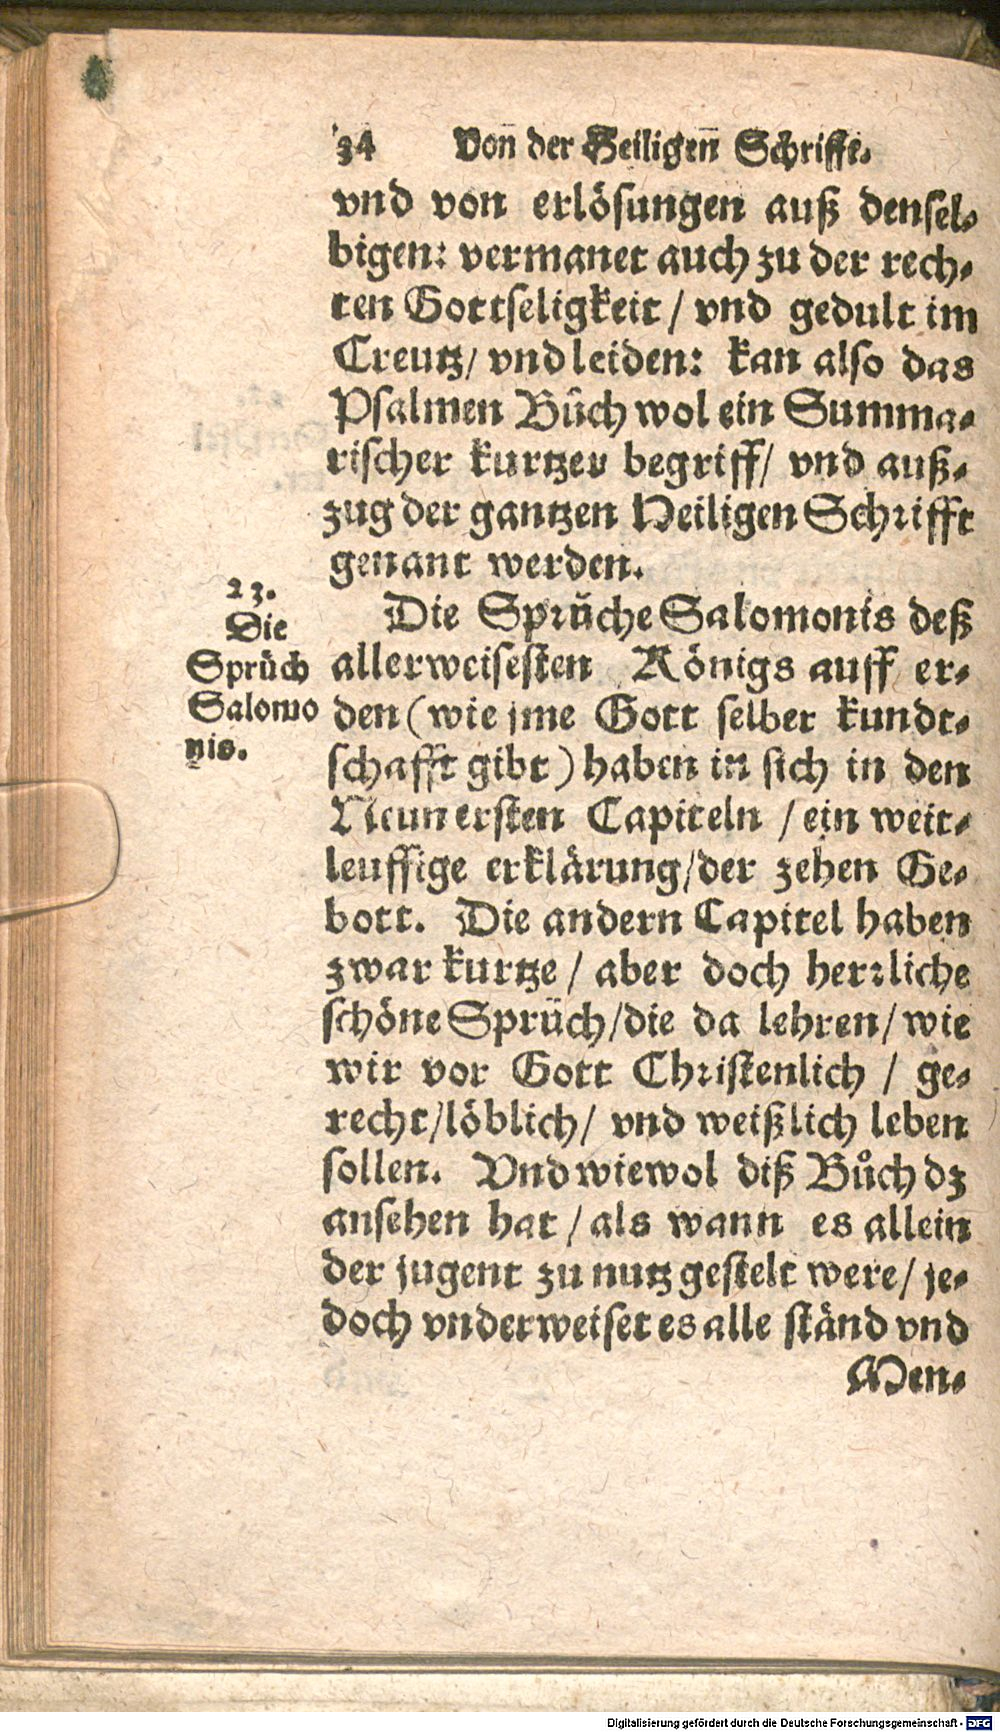 34 Von der Heiligen Schrifft.
vnd von erlösungen auß densel-
bigen: vermanet auch zu der rech-
ten Gottseligkeit / vnd gedult im
Creutz / vnd leiden: kan also das
Psalmen Bůch wol ein Summa-
rischer kurtzer begriff / vnd auß-
zug der gantzen Heiligen Schrifft
genant werden.
23.
Die
Sprüch
Salomo
nis.
Die Sprüche Salomonis deß
allerweisesten Königs auff er-
den (wie jme Gott selber kundt-
schafft gibt) haben in sich in den
Neun ersten Capiteln / ein weit-
leuffige erklärung / der zehen Ge-
bott. Die andern Capitel haben
zwar kurtze / aber doch herrliche
schöne Sprüch / die da lehren / wie
wir vor Gott Christenlich / ge-
recht / löblich / vnd weißlich leben
sollen. Vnd wiewol diß Bůch dz
ansehen hat / als wann es allein
der jugent zu nutz gestelt were / je-
doch vnderweiset es alle ständ vnd
Men-
Digitalisierung gefördert durch die Deutsche Forschungsgemeinschaft - DFG